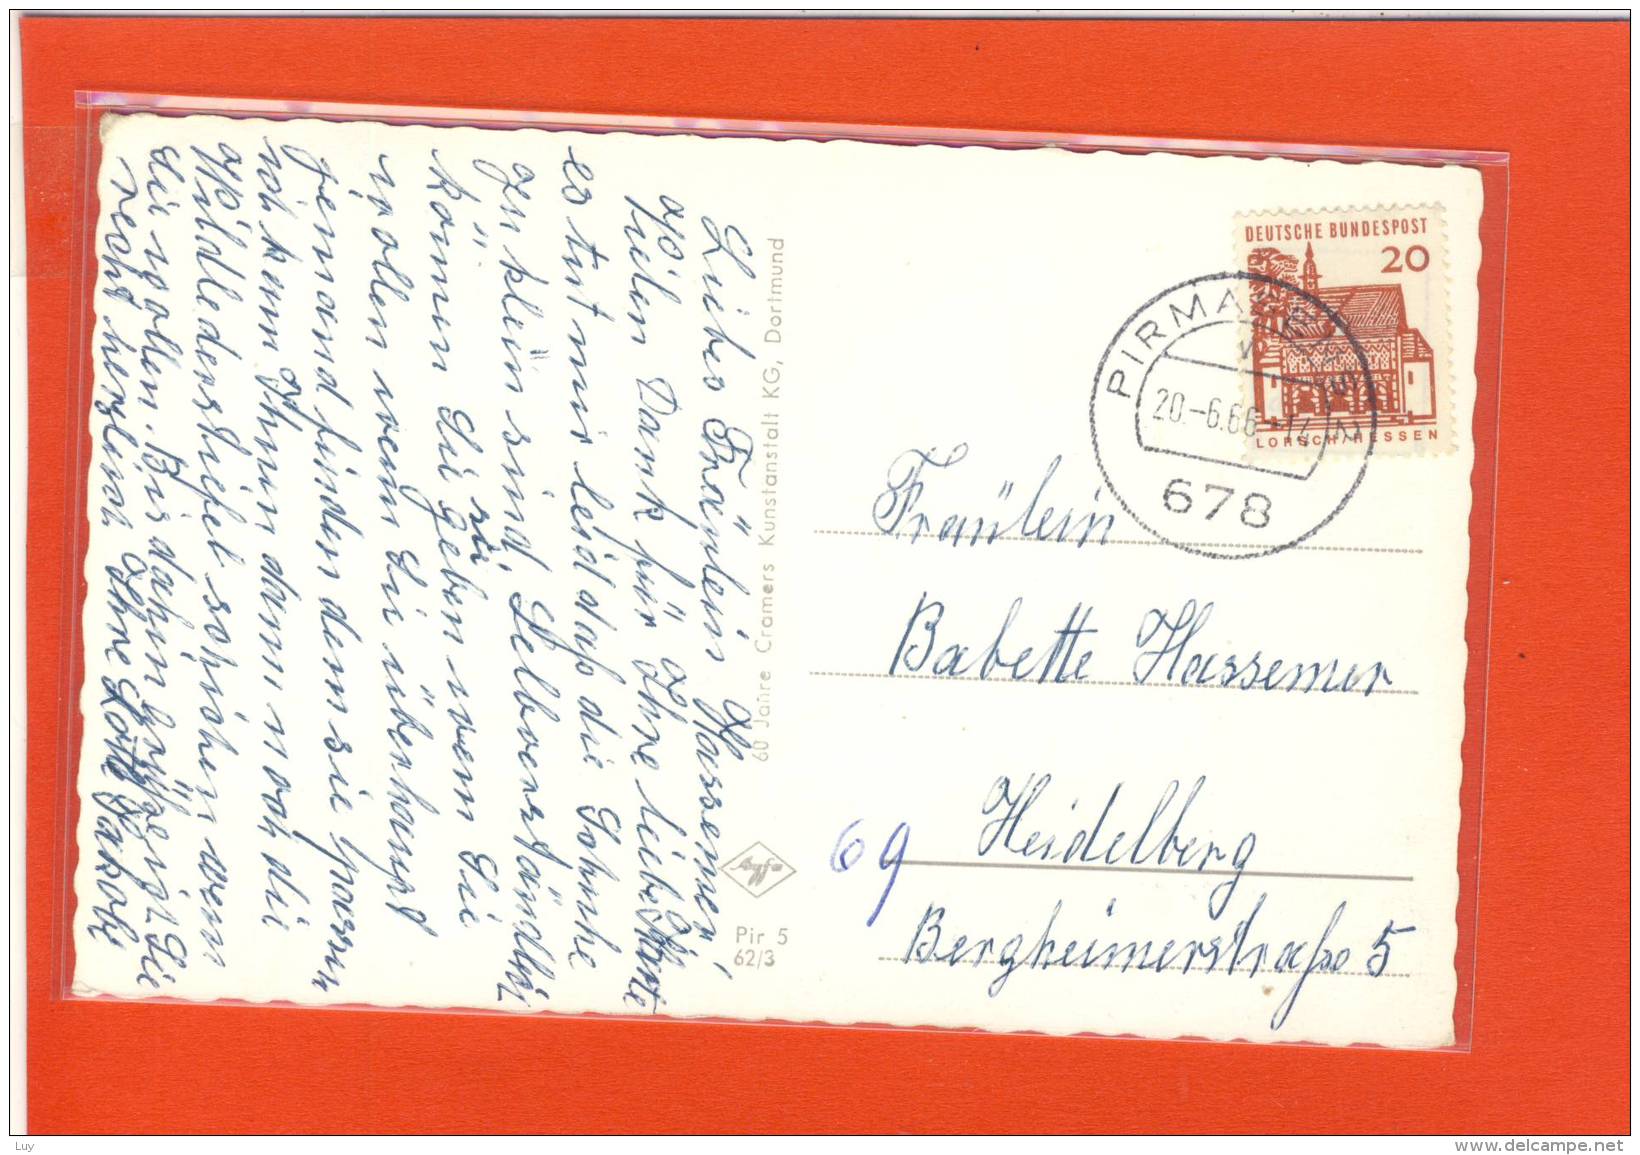 Liebes Fräulein Hassemer!
Vielen Dank für Ihre liebe Karte
es tut mir leid das die Schuhe
zu klein sind, Selbverständlich
können Sie sie geben wem Sie
wollen wenn Sie überhaupt
jemand finden dem sie passen
ich kann Ihnen dann noch die
Wildlederstiefel schicken wenn
sie wollen. Bis dahin grüße ich Sie
recht herzlich Ihre Lotte Jakobi
60 Jahre Cramers Kunstanstalt KG, Dortmund
Agfa
Pir 5
62/3
DEUTSCHE BUNDESPOST
20
LORSCH/HESSEN
PIRMASENS
20.-6.66-14
678
Fräulein
Babette Hassemer
69
Heidelberg
Bergheimerstraße 5
Luy
www.delcampe.net